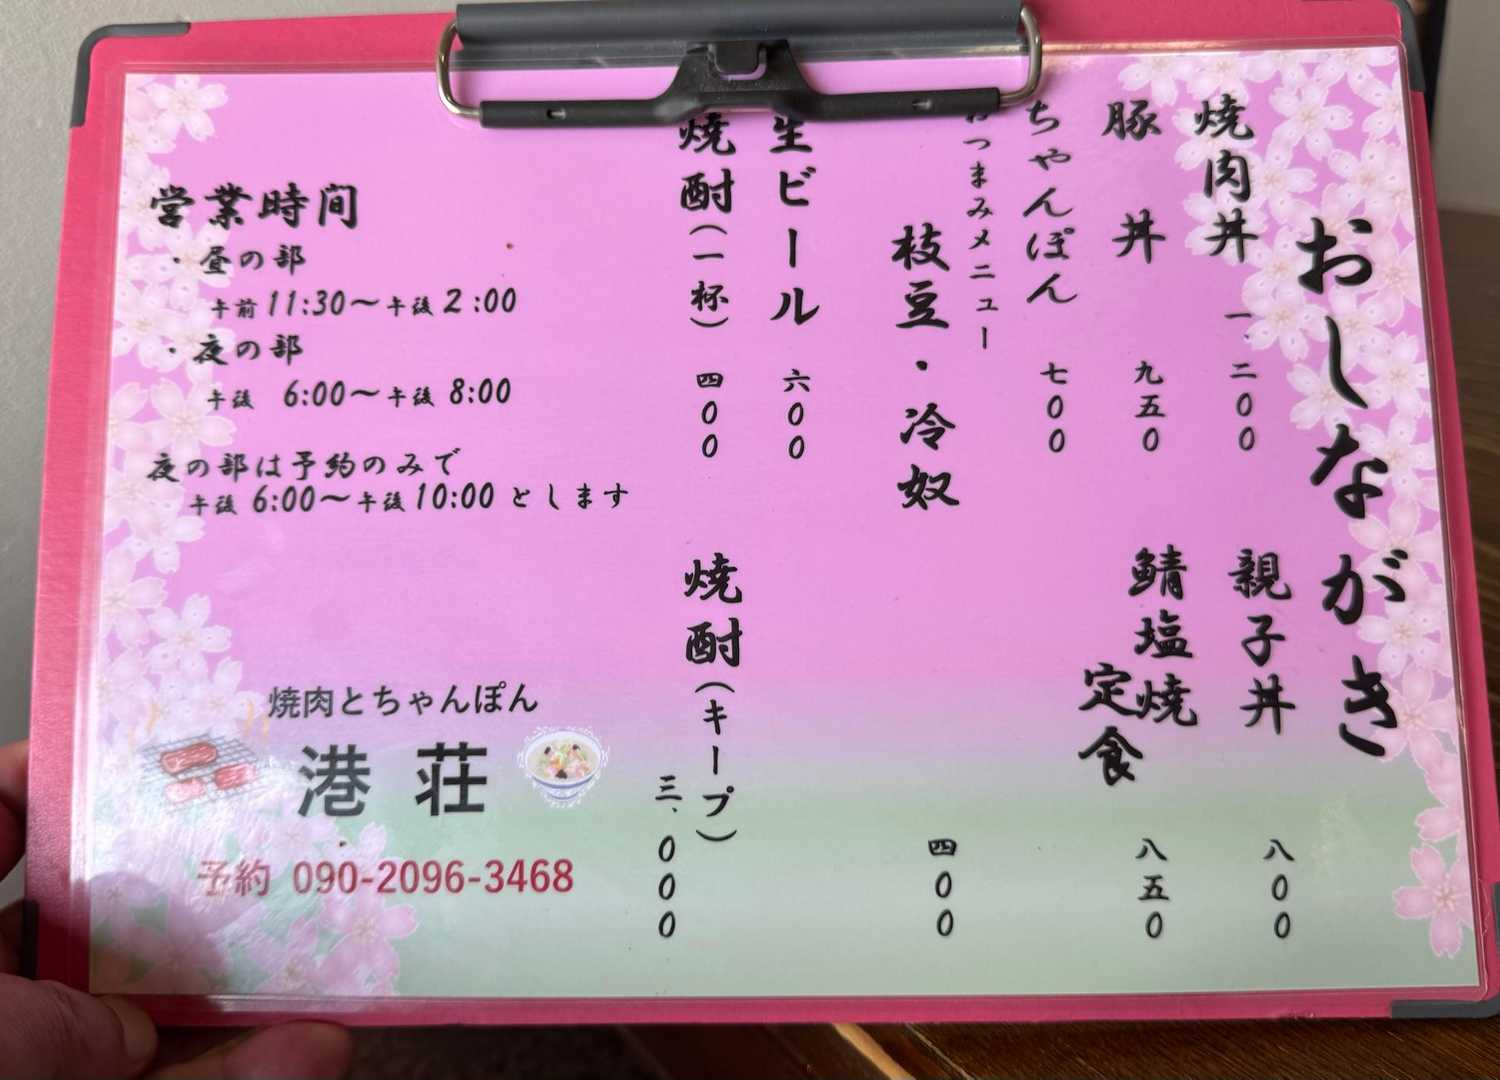 おしながき
焼肉丼 一、二00
親子丼 八00
豚丼 九五0
鯖塩焼定食 八五0
ちゃんぽん 七00
おつまみメニュー
枝豆・冷奴 四00
生ビール 六00
焼酎(一杯) 四00
焼酎(キープ) 三、000
営業時間
・昼の部
午前11:30～午後2:00
・夜の部
午後 6:00～午後 8:00
夜の部は予約のみで
午後 6:00～午後10:00 とします
焼肉とちゃんぽん
港荘
予約 090-2096-3468